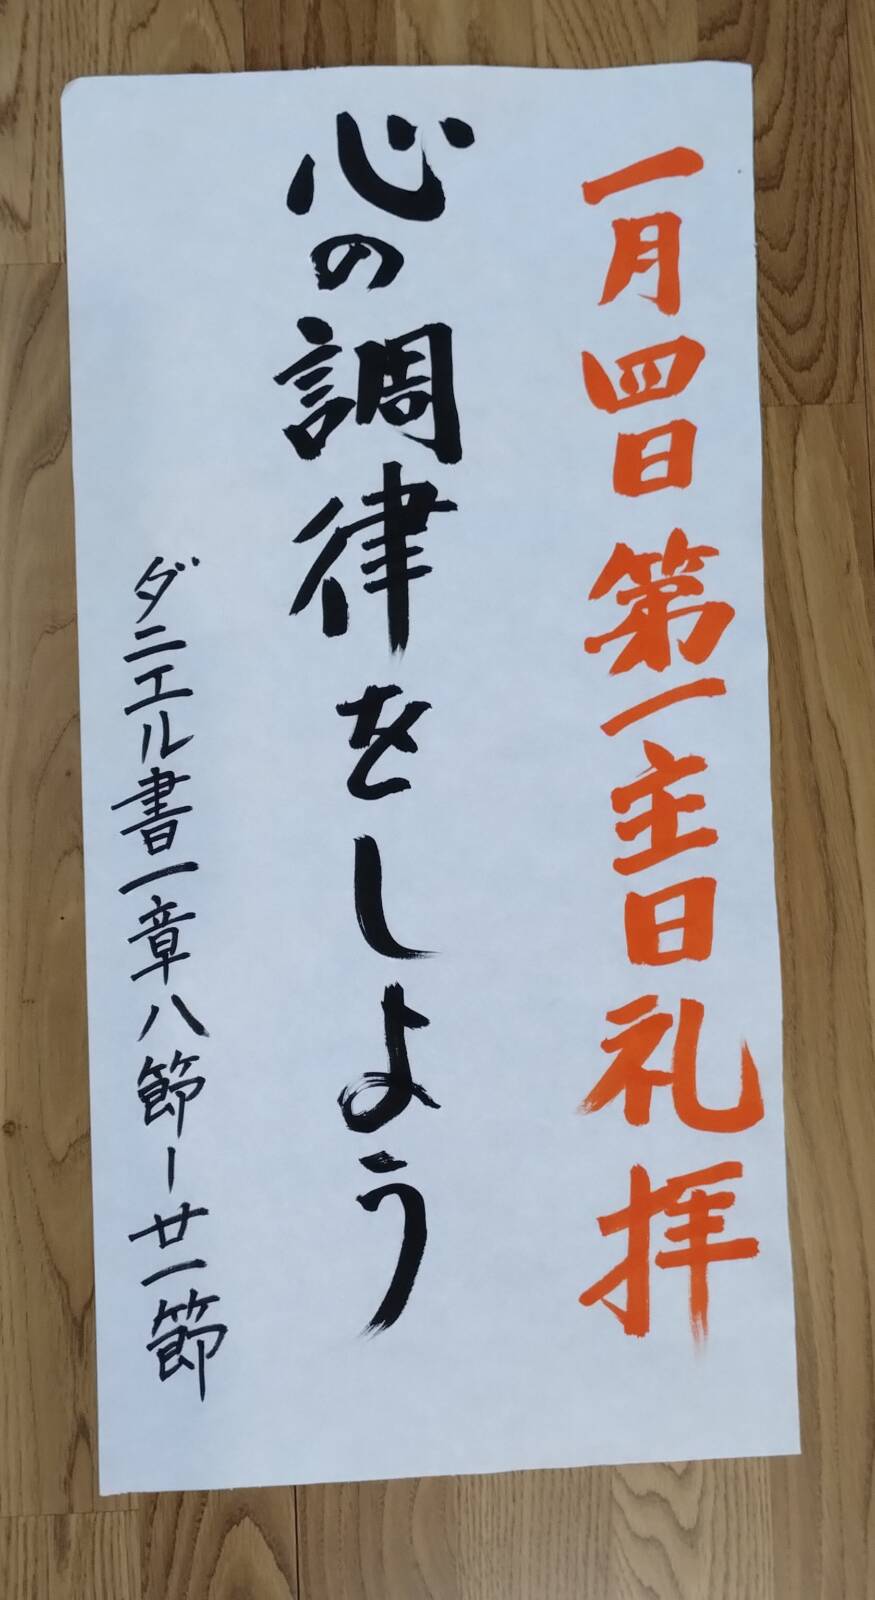 一月四日第一主日礼拝
心の調律をしよう
ダニエル書一章八節ー廿一節